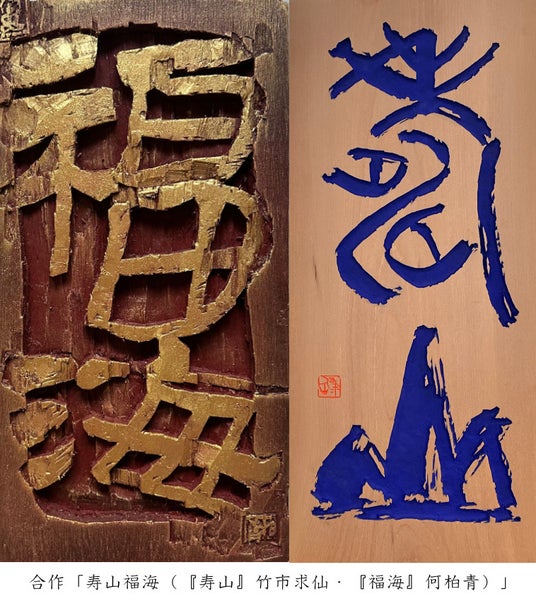 壽山
福海
合作「寿山福海（『寿山』竹市求仙・『福海』何柏青）」